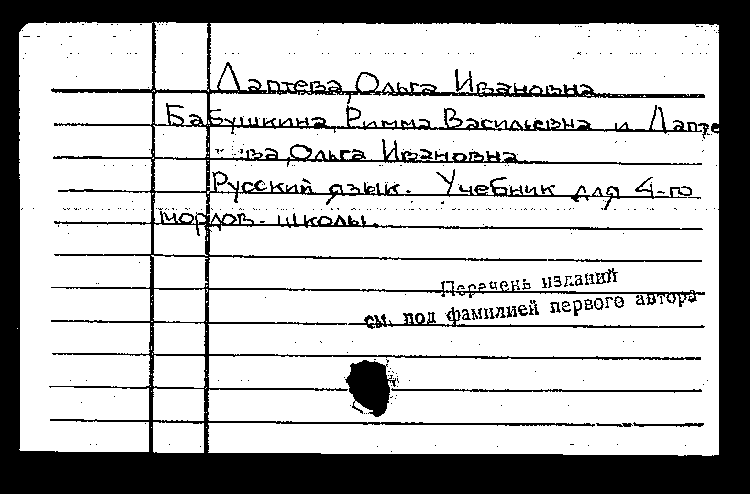 Лаптева, Ольга Ивановна
Бабушкина, Римма Васильевна и Лапте
ва, Ольга Ивановна
Русский язык. Учебник для 4-го
мордов. школы.
Перечень изданий
см. под фамилией первого автора